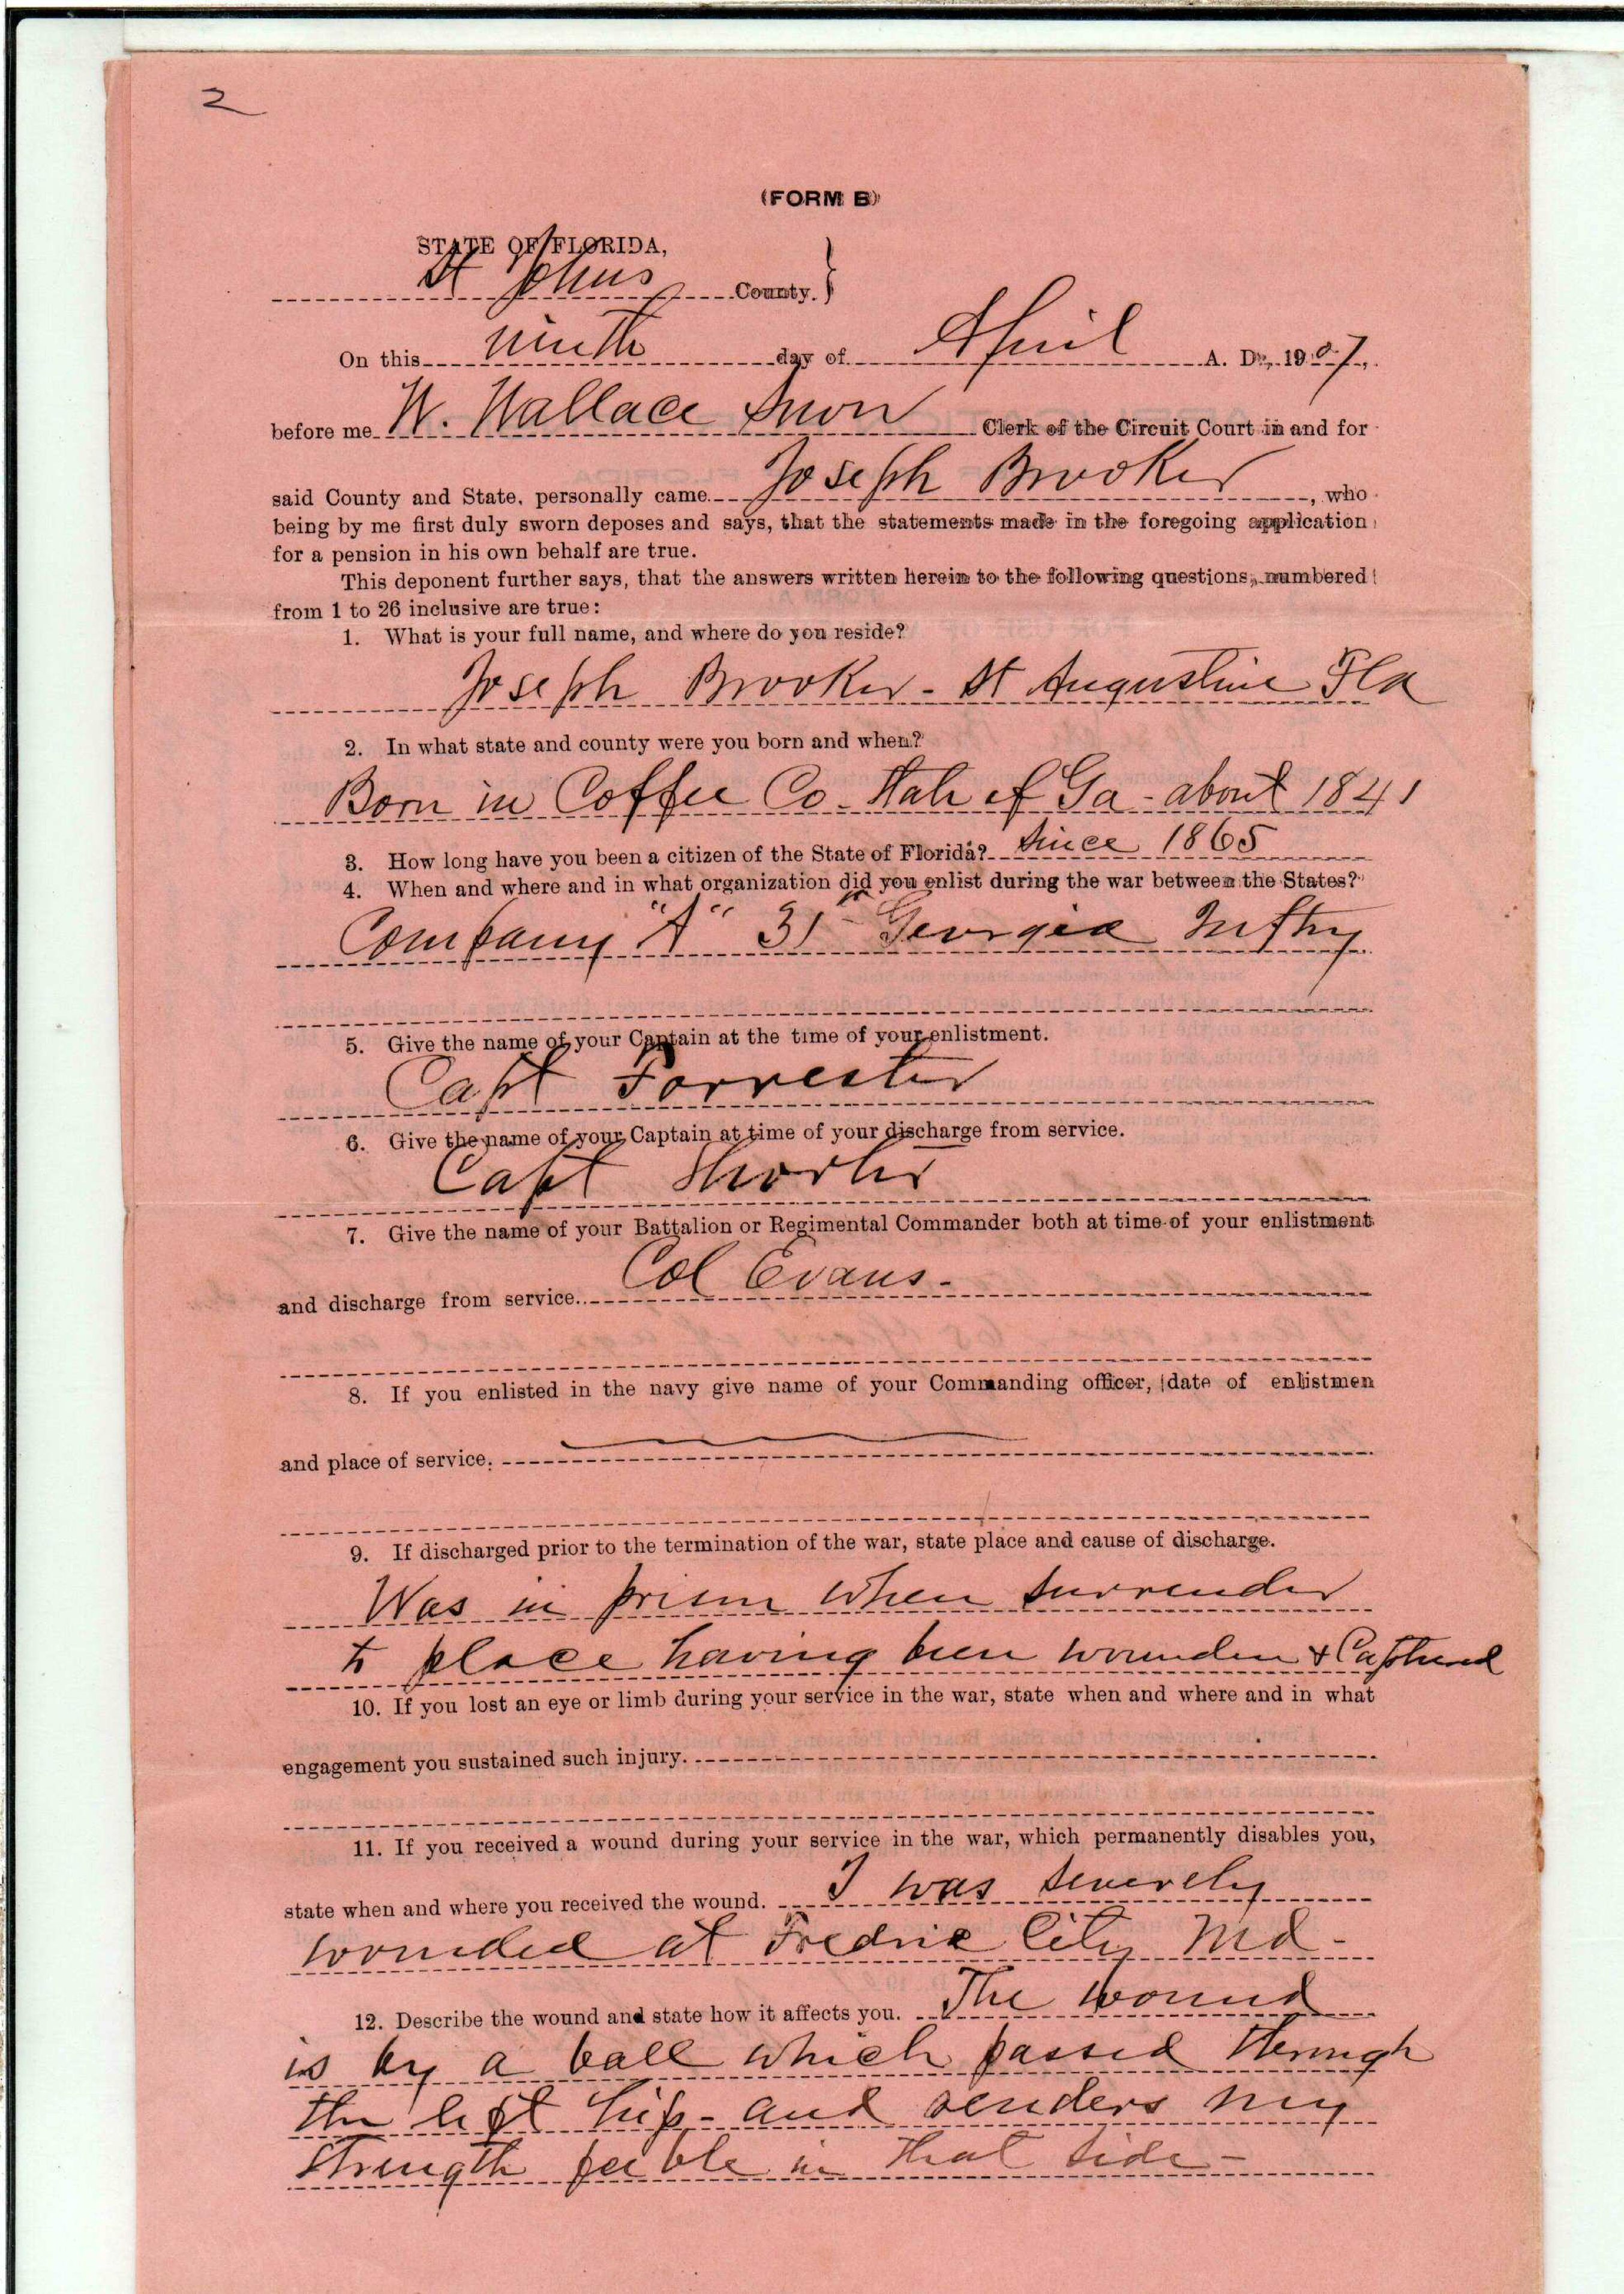 2
(FORM B)
STATE OF FLORIDA,
St Johns County. }
On this ninth day of April A. D., 1907,
before me W. Wallace Snow Clerk of the Circuit Court in and for
said County and State, personally came Joseph Brooker, who
being by me first duly sworn deposes and says, that the statements made in the foregoing application
for a pension in his own behalf are true.
This deponent further says, that the answers written herein to the following questions, numbered
from 1 to 26 inclusive are true:
1. What is your full name, and where do you reside?
Joseph Brooker - St Augustine Fla
2. In what state and county were you born and when?
Born in Coffee Co - State of Ga - about 1841
3. How long have you been a citizen of the State of Florida? Since 1865
4. When and where and in what organization did you enlist during the war between the States?
Company "A" 31st Georgia Inftry
5. Give the name of your Captain at the time of your enlistment.
Capt Forrester
6. Give the name of your Captain at time of your discharge from service.
Capt Shorter
7. Give the name of your Battalion or Regimental Commander both at time of your enlistment
and discharge from service. Col Evans -
8. If you enlisted in the navy give name of your Commanding officer, date of enlistmen
and place of service.
9. If discharged prior to the termination of the war, state place and cause of discharge.
Was in prison when surrender
to place having been wounden & Captured
10. If you lost an eye or limb during your service in the war, state when and where and in what
engagement you sustained such injury.
11. If you received a wound during your service in the war, which permanently disables you,
state when and where you received the wound. I was severely
wounded at Fredric City Md -
12. Describe the wound and state how it affects you. The wound
is by a ball which passed through
the left hip - and renders my
strength feeble in that side -